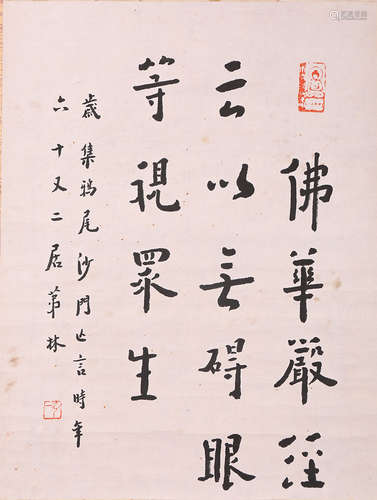 佛華嚴經
云以無碍眼
等視眾生
歲集鶉尾沙門亡言時年
六十又二居茀林